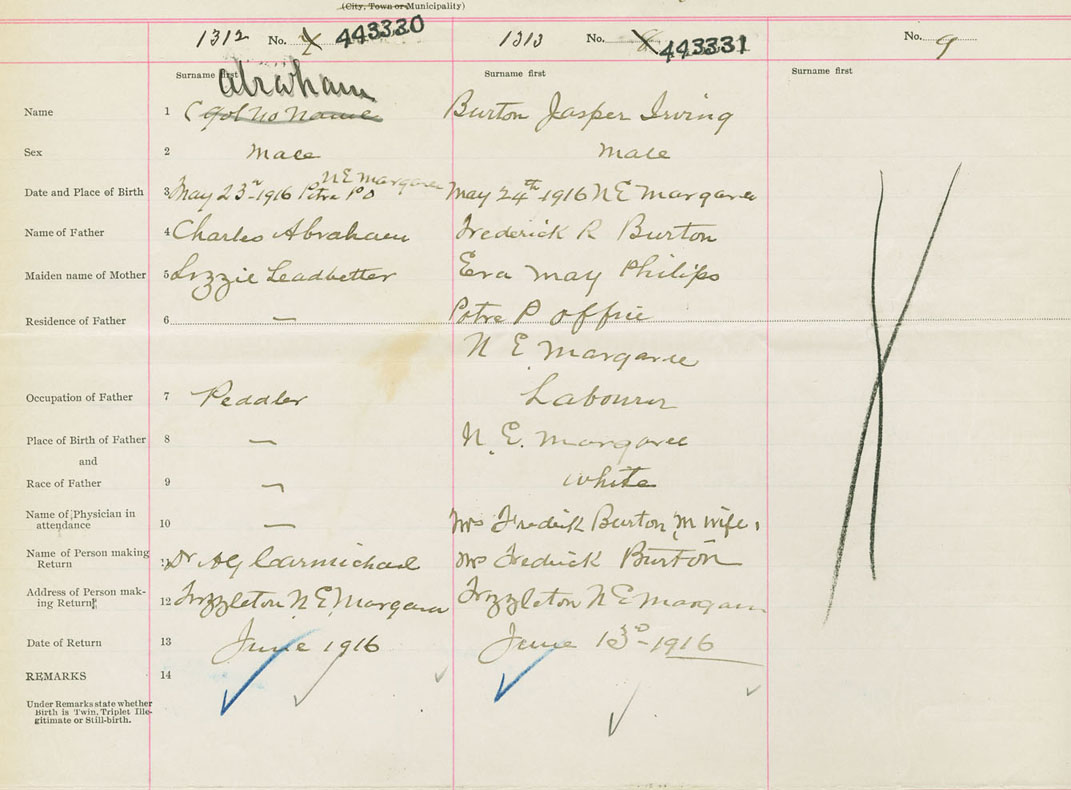 (City, Town or Municipality)
1312 No. 7 443330 1313 No. 8 443331 No. 9
Surname first Surname first Surname first
Abraham
Name 1 (got no name Burton Jasper Irving
Sex 2 Male Male
N E Margaree
Date and Place of Birth 3 May 23rd-1916 PO May 24th-1916 N E Margaree
Name of Father 4 Charles Abraham Frederick R Burton
Maiden name of Mother 5 Lizzie Leadbetter Eva May Philips
Residence of Father 6 — P Office
N E Margaree
Occupation of Father 7 Peddler Labourer
Place of Birth of Father 8 — N. E. Margaree
and
Race of Father 9 — White
Name of Physician in
attendance 10 — Mrs Fredrick Burton M wife.
Name of Person making
Return 11 Dr AG Carmichael Mrs Fredrick Burton
Address of Person mak-
ing Return 12 Frizzleton N E Margaree Frizzleton N E Margaree
Date of Return 13 June 1916 June 13th-1916
REMARKS 14
Under Remarks state whether
Birth is Twin, Triplet Ille-
gitimate or Still-birth.